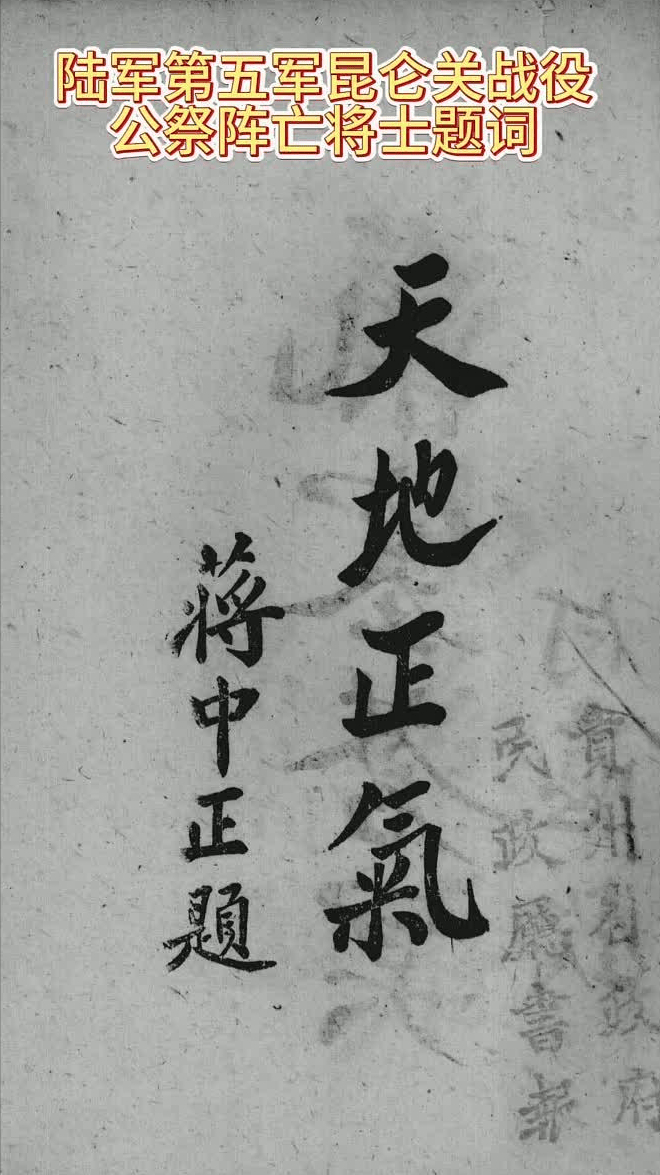 陆军第五军昆仑关战役
公祭阵亡将士题词
天地正氣
蔣中正題
貴州省政府
民政廳書報